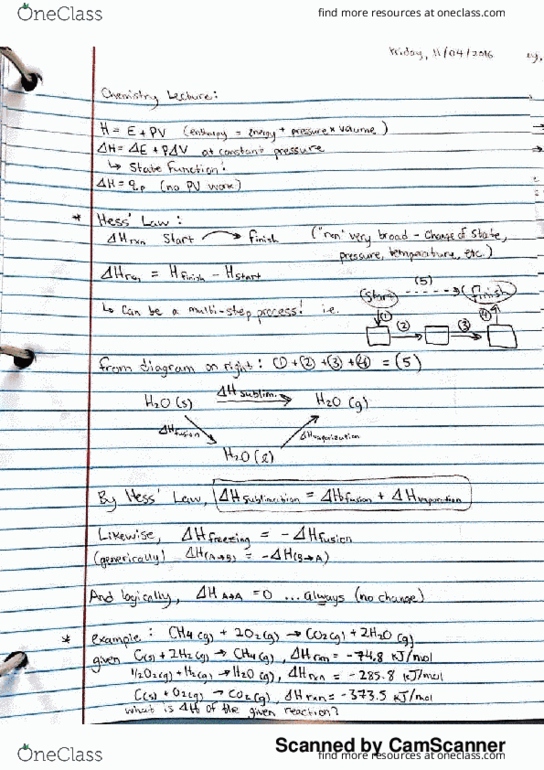 OneClass
find more resources at oneclass.com
Friday, 11/04/2016
Chemistry Lecture:
H = E + PV (enthalpy = energy + pressure × volume)
ΔH = ΔE + PΔV at constant pressure
↳ State Function!
ΔH = qp (no PV work)
* Hess' Law:
ΔHrxn Start → finish ("rxn" very broad - change of state,
pressure, temperature, etc.)
ΔHrxn = Hfinish - Hstart
(5)
Start ----> finish
↳ Can be a multi-step process! i.e.
(1) (2) (3) (4)
from diagram on right: (1) + (2) + (3) + (4) = (5)
H2O (s) ΔHsublim. → H2O (g)
ΔHfusion ΔHvaporization
H2O (l)
By Hess' Law, ΔHsublimation = ΔHfusion + ΔHvaporation
Likewise, ΔHfreezing = -ΔHfusion
(generically) ΔH(A→B) = -ΔH(B→A)
And logically, ΔH A→A = 0 ... always (no change)
* example: CH4(g) + 2O2(g) → CO2(g) + 2H2O (g)
given C(s) + 2H2(g) → CH4(g), ΔHrxn = -74.8 kJ/mol
1/2O2(g) + H2(g) → H2O (g), ΔHrxn = -285.8 kJ/mol
C(s) + O2(g) → CO2(g), ΔHrxn = -373.5 kJ/mol
what is ΔH of the given reaction?
Scanned by CamScanner
OneClass
find more resources at oneclass.com